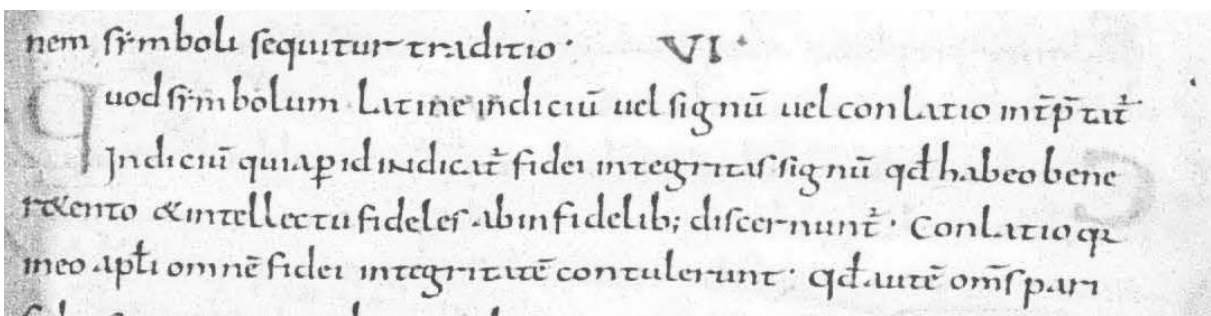 nem symboli sequitur traditio · VI ·
Quod symbolum · Latine indiciū uel signū uel conlatio int̄p̄tat᷑
Indiciū quia ꝑ id indicat᷑ fidei integritas signū qd̄ habeo bene
r&ento &intellectu fideles abinfidelib; discernunt᷑ · Conlatio qꝛ
ineo apłi omnē fidei integritatē contulerunt · qd̄ autē om̄s pari